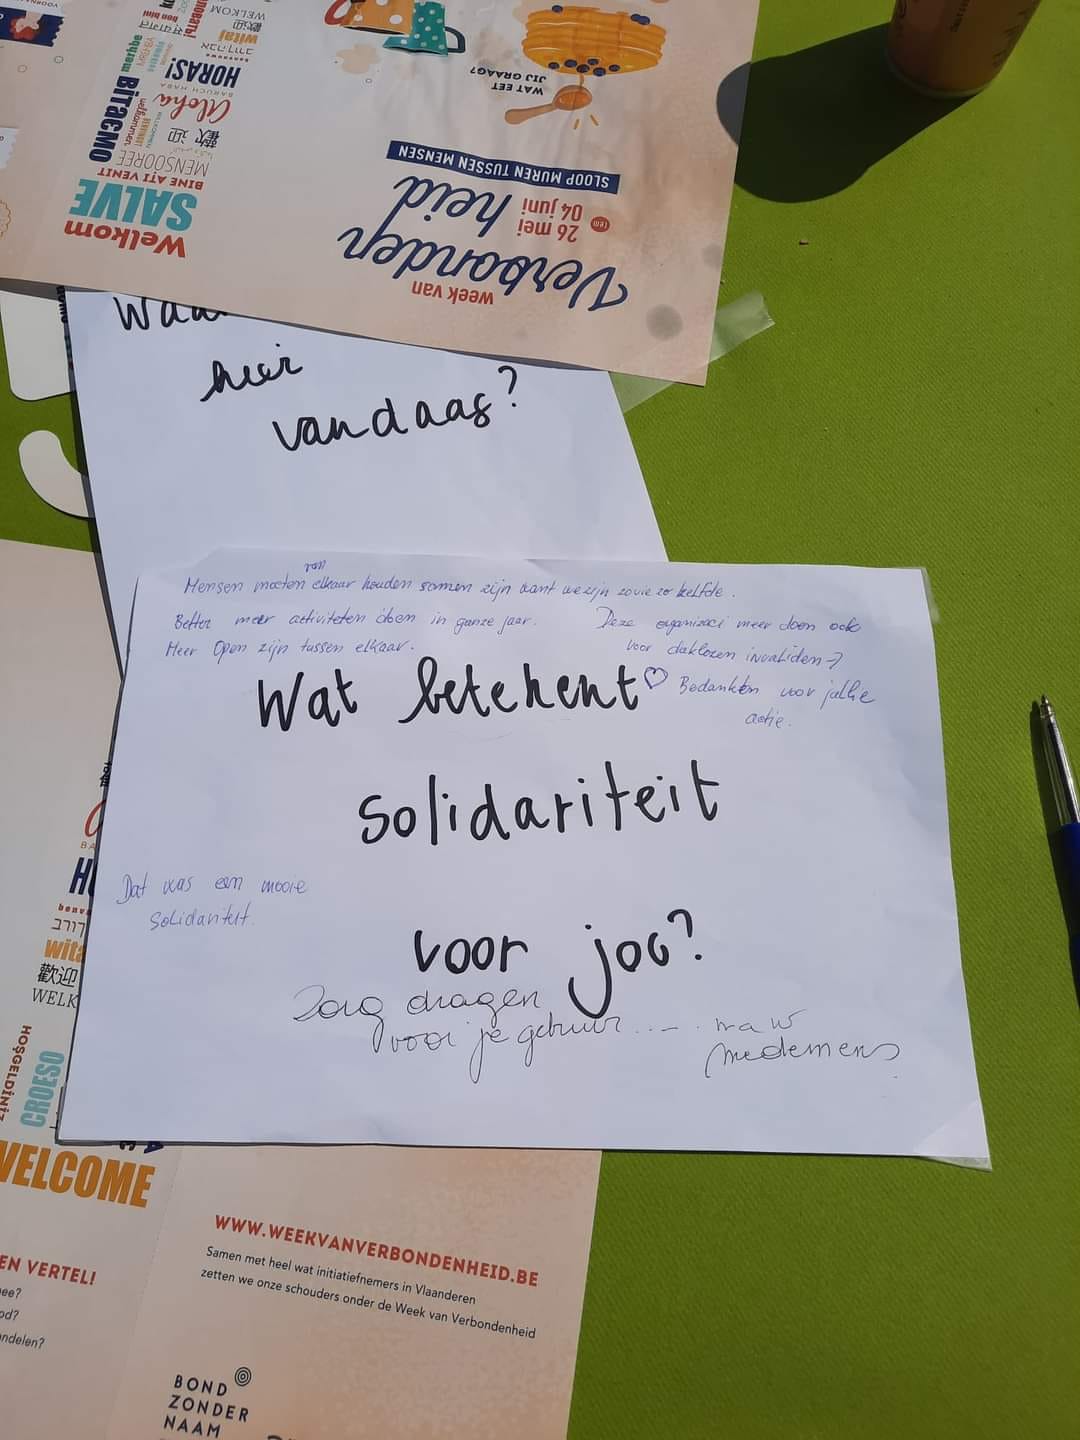 WELKOM
歡迎
witaj
HORAS!
BARUCH HABA
Aloha
歡迎
merhbe
Bітаємо
MENSÖÖREE
BINE AȚI VENIT
SALVE
Welkom
WAT EET
JIJ GRAAG?
SLOOP MUREN TUSSEN MENSEN
26 mei
tem
04 juni
week van
Verbonden
heid
hier
vandaag?
Mensen moeten van elkaar houden samen zijn want we zijn zowie zo zelfde.
Better meer activiteten doen in ganze jaar.
Meer Open zijn tussen elkaar.
Deze organizaci meer doen ook
voor daklozen invaliden →
♡ Bedankten voor jullie
actie.
Wat betekent
solidariteit
voor jou?
Dat was een mooie
Solidariteit.
Zorg dragen
voor je gebuur..... m a w
medemens
歡迎
HOŞGELDİNİZ
CROESO
WELCOME
EN VERTEL!
WWW.WEEKVANVERBONDENHEID.BE
Samen met heel wat initiatiefnemers in Vlaanderen
zetten we onze schouders onder de Week van Verbondenheid
BOND
ZONDER
NAAM